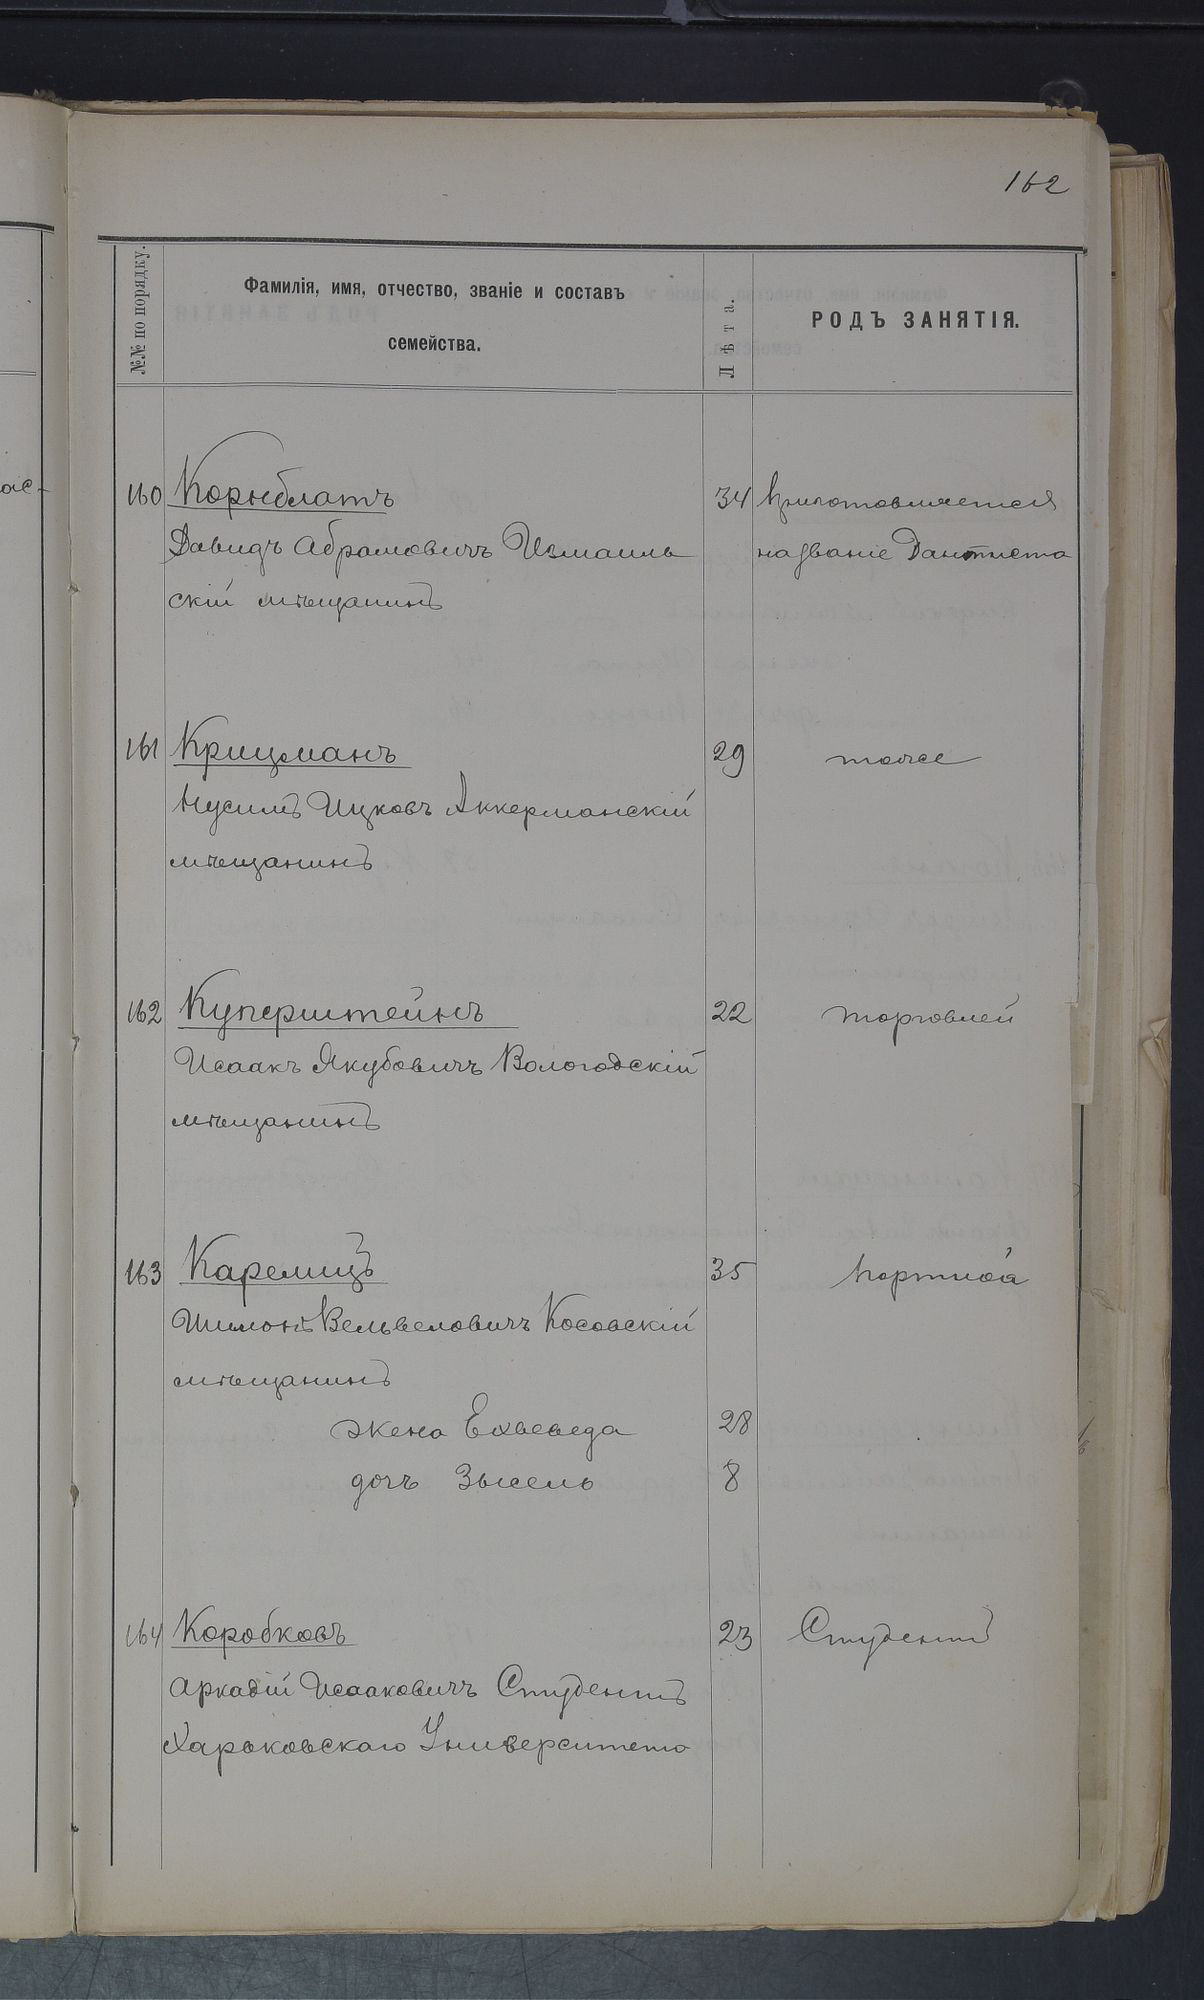 162
№№ по порядку.
Фамилія, имя, отчество, званіе и составъ
семейства.
Лѣта.
РОДЪ ЗАНЯТІЯ.
160 Корнблатъ 34 приготовляется
Давидъ Абрамовичъ Измаиль на званіе Дантиста
скій мѣщанинъ
161 Крицманъ 29 тоже
Нусимъ Ицковъ Аккерманскій
мѣщанинъ
162 Куперштейнъ 22 торговлей
Исаакъ Якубовичъ Вологодскій
мѣщанинъ
163 Карелицъ 35 портной
Шимонъ Вельвеловичъ Косовскій
мѣщанинъ
жена Ехевведа 28
дочь Зысель 8
164 Коробковъ 23 Студентъ
Аркадій Исааковичъ Студентъ
Харьковскаго Университета